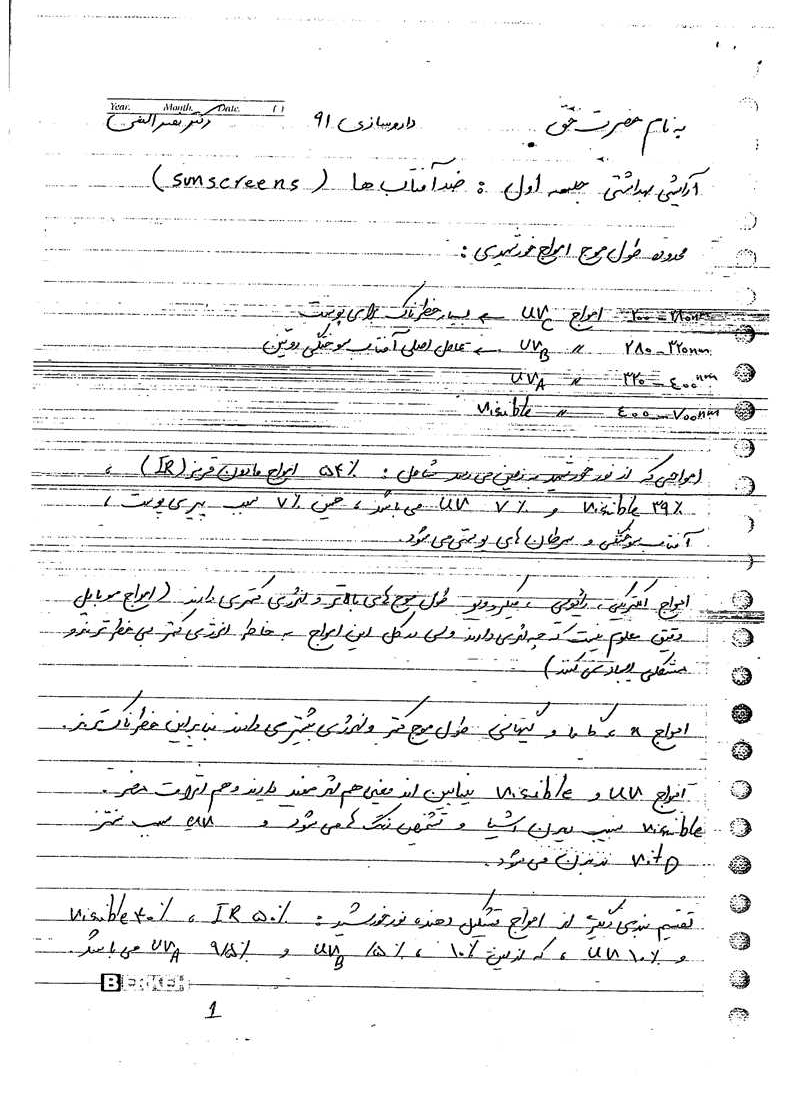 Year. Month. Date. ( )
به نام حضرت حق داروسازی ۹۱ دکتر
آرایشی بهداشتی جلسه اول : ضدآفتاب ها ( sunscreens )
محدوده طول موج امواج خورشیدی :
۲۰۰-۲۸۰nm امواج UVC ← بسیار خطرناک برای پوست
۲۸۰-۳۲۰nm " UVB ← عامل اصلی آفتاب سوختگی روتین
۳۲۰-۴۰۰nm " UVA
۴۰۰-۷۰۰nm " Visible
امواجی که از نور خورشید به زمین می رسد شامل : ۵۴٪ امواج مادون قرمز (IR) ،
۳۹٪ Visible و ۷٪ UV می باشد ، همین ۷٪ سبب پیری پوست ،
آفتاب سوختگی و سرطان های پوستی می شود.
امواج الکتریکی ، رادیویی ، میکروویو طول موج های بالاتر و انرژی کمتری دارند ( امواج موبایل
دقیق معلوم نیست که چه اثری دارند ولی در کل این امواج به خاطر انرژی کمتر بی خطرترند و
مشکلی ایجاد نمی کنند )
امواج x ، گاما و کیهانی طول موج کمتر و انرژی بیشتری دارند بنابراین خطرناک ترند.
امواج UV و Visible بینابین اند یعنی هم اثر مفید دارند و هم اثرات مضر.
Visible سبب دیدن اشیا و تشخیص رنگ ها می شود و UV سبب سنتز
Vit D در بدن می شود.
تقسیم بندی دیگر از امواج تشکیل دهنده نور خورشید : ۵۰٪ IR ، ۴۰٪ Visible
و ۱۰٪ UV ، که از این ۱۰٪ ، ۰/۵٪ UVB و ۹/۵٪ UVA می باشد.
BERKEH
1